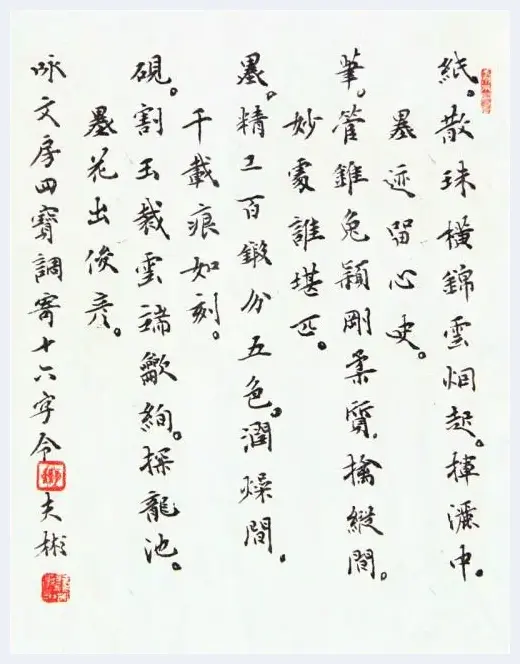 紙。散珠橫錦雲烟起。揮灑中。
墨迹留心史。
筆。管錐兔穎剛柔質，擒縱間。
妙處誰堪匹。
墨。精工百鍛分五色。潤燥間，
千載痕如刻。
硯。割玉裁雲端歙絢。探龍池。
墨花出俊彥。
咏文房四寶調寄十六字令 夫彬